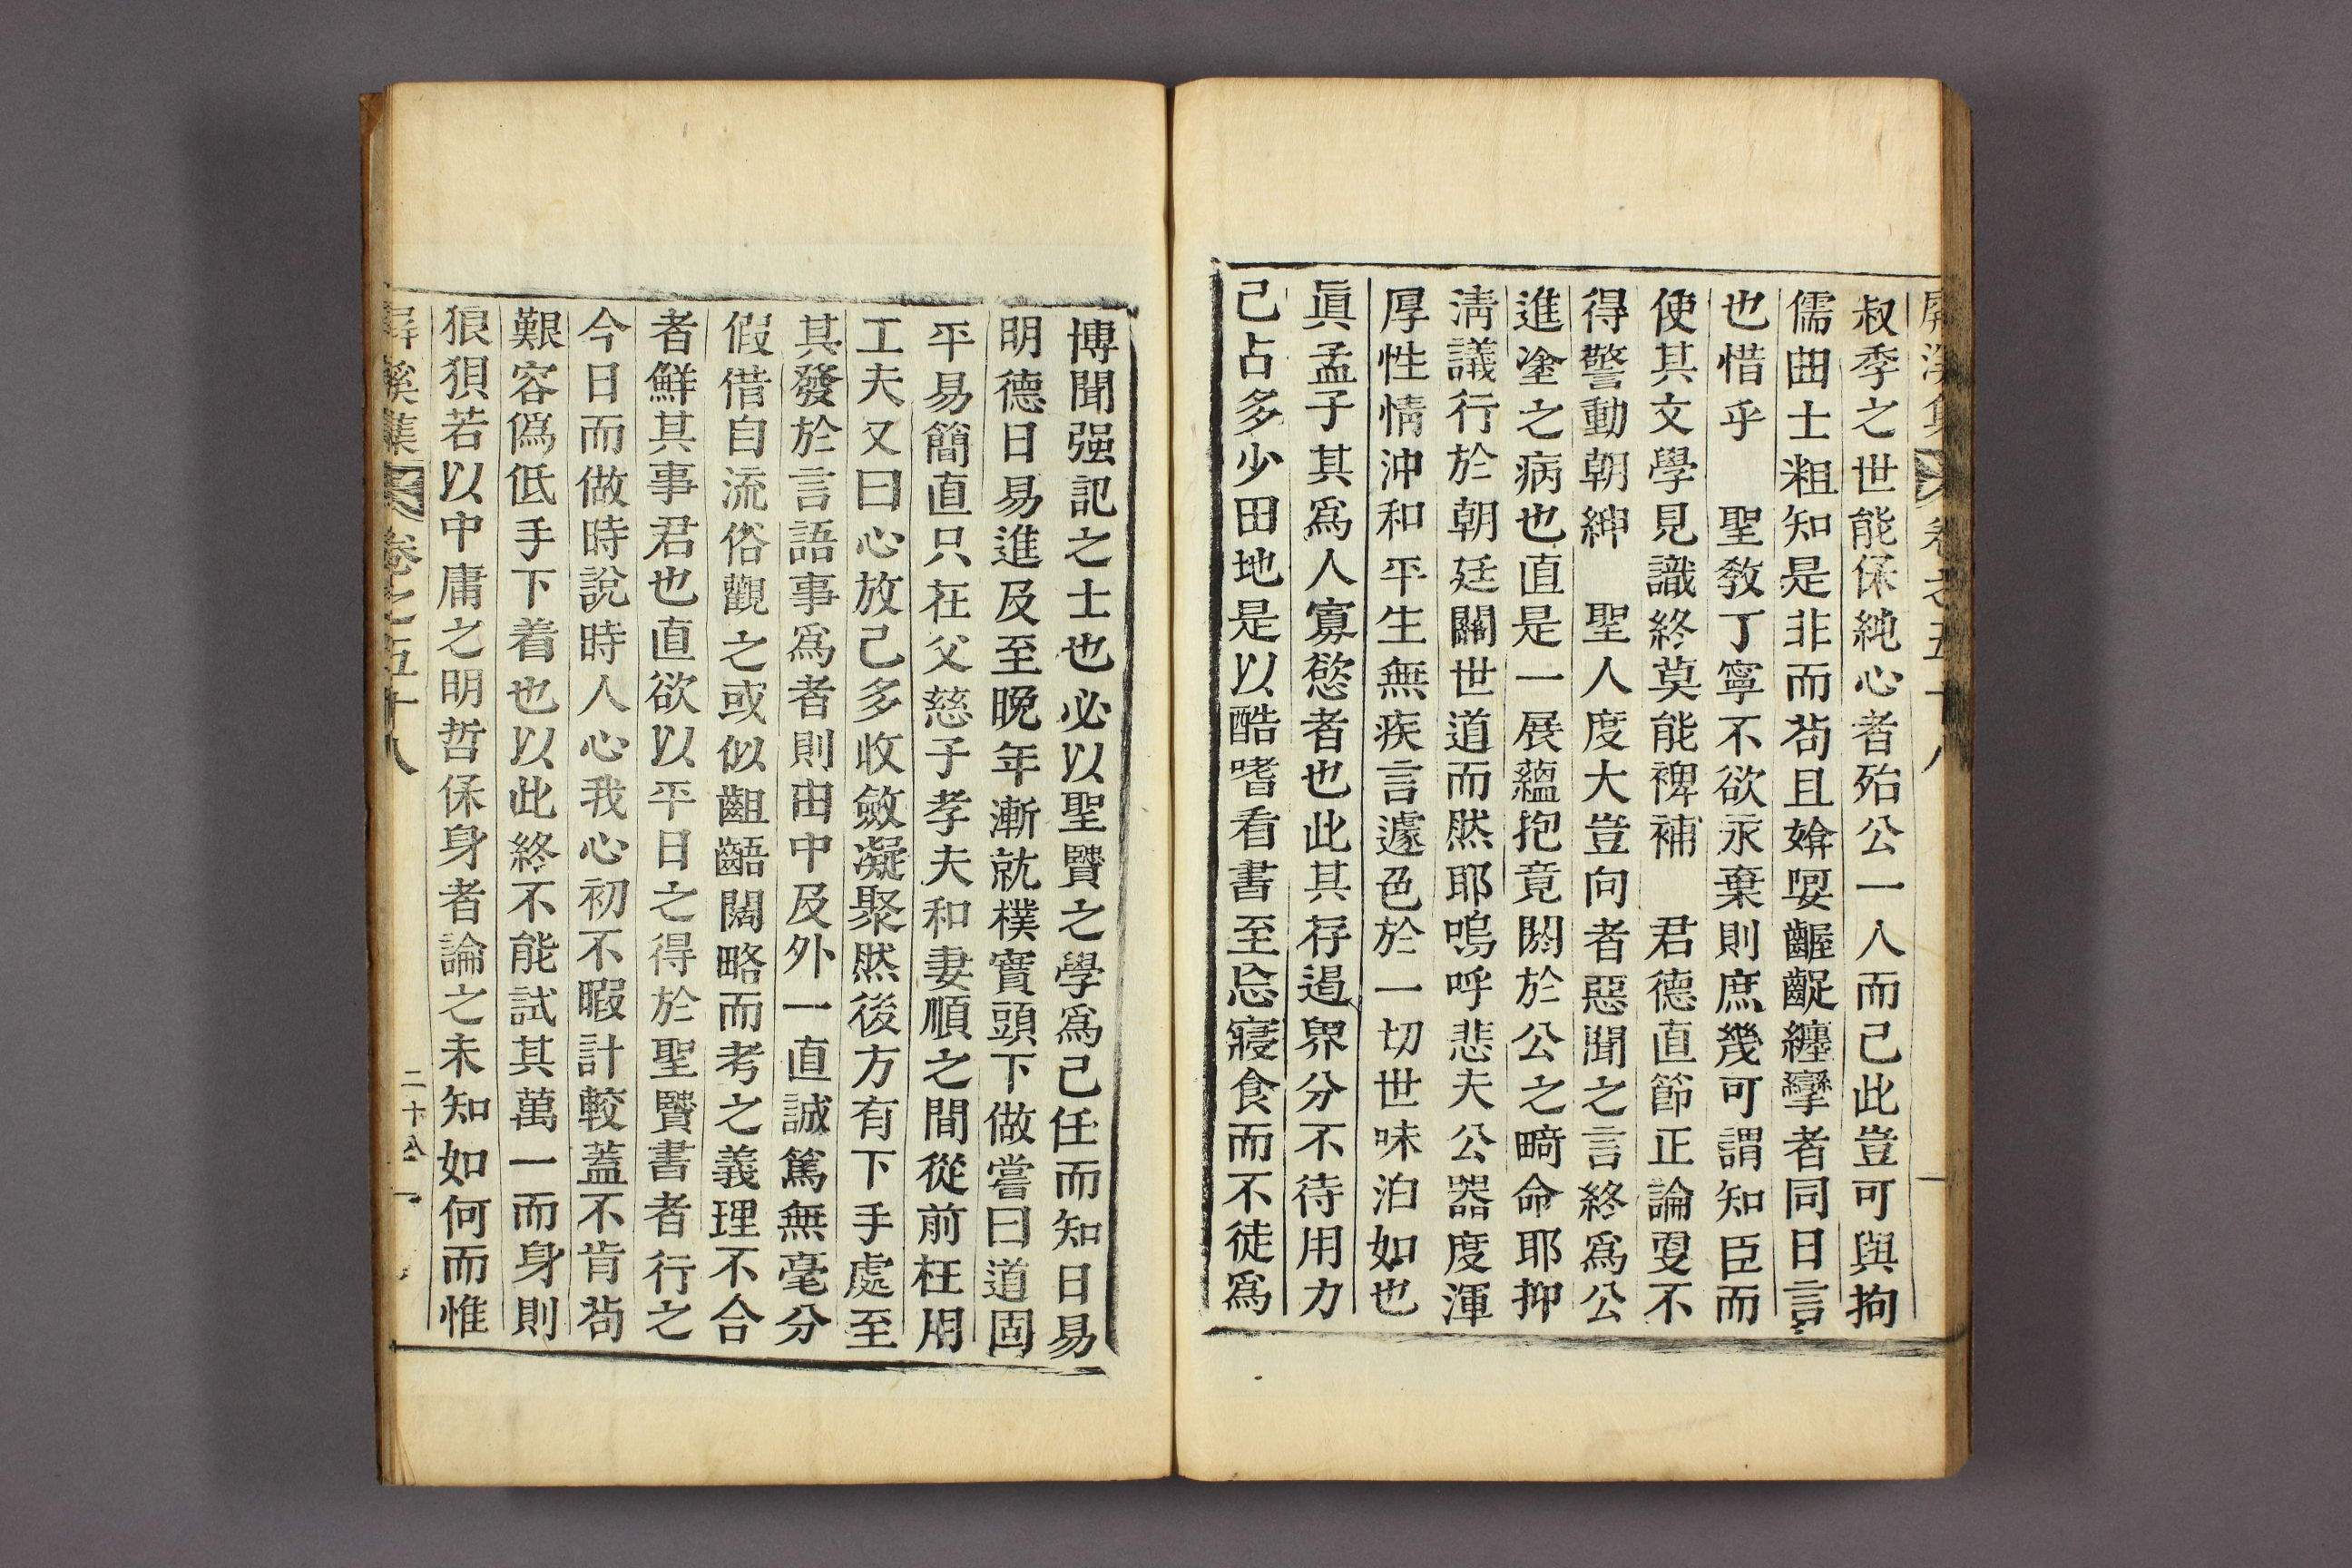 屛溪集 卷之五十八
叔季之世能保純心者殆公一人而已此豈可與拘
儒曲士粗知是非而苟且媕婀齷齪纏攣者同日言
也惜乎 聖敎丁寧不欲永棄則庶幾可謂知臣而
使其文學見識終莫能裨補 君德直節正論曼不
得警動朝紳 聖人度大豈向者惡聞之言終爲公
進塗之病也直是一展蘊抱竟關於公之畸命耶抑
淸議行於朝廷關世道而然耶嗚呼悲夫公器度渾
厚性情沖和平生無疾言遽色於一切世味泊如也
眞孟子其爲人寡慾者也此其存遏界分不待用力
已占多少田地是以酷嗜看書至忘寢食而不徒爲
博聞强記之士也必以聖賢之學爲己任而知日易
明德日易進及至晚年漸就樸實頭下做嘗曰道固
平易簡直只在父慈子孝夫和妻順之間從前枉用
工夫又曰心放已多收斂凝聚然後方有下手處至
其發於言語事爲者則由中及外一直誠篤無毫分
假借自流俗觀之或似齟齬闊略而考之義理不合
者鮮其事君也直欲以平日之得於聖賢書者行之
今日而做時說時人心我心初不暇計較蓋不肯苟
艱容僞低手下着也以此終不能試其萬一而身則
狼狽若以中庸之明哲保身者論之未知如何而惟
屛溪集 卷之五十八 二十八